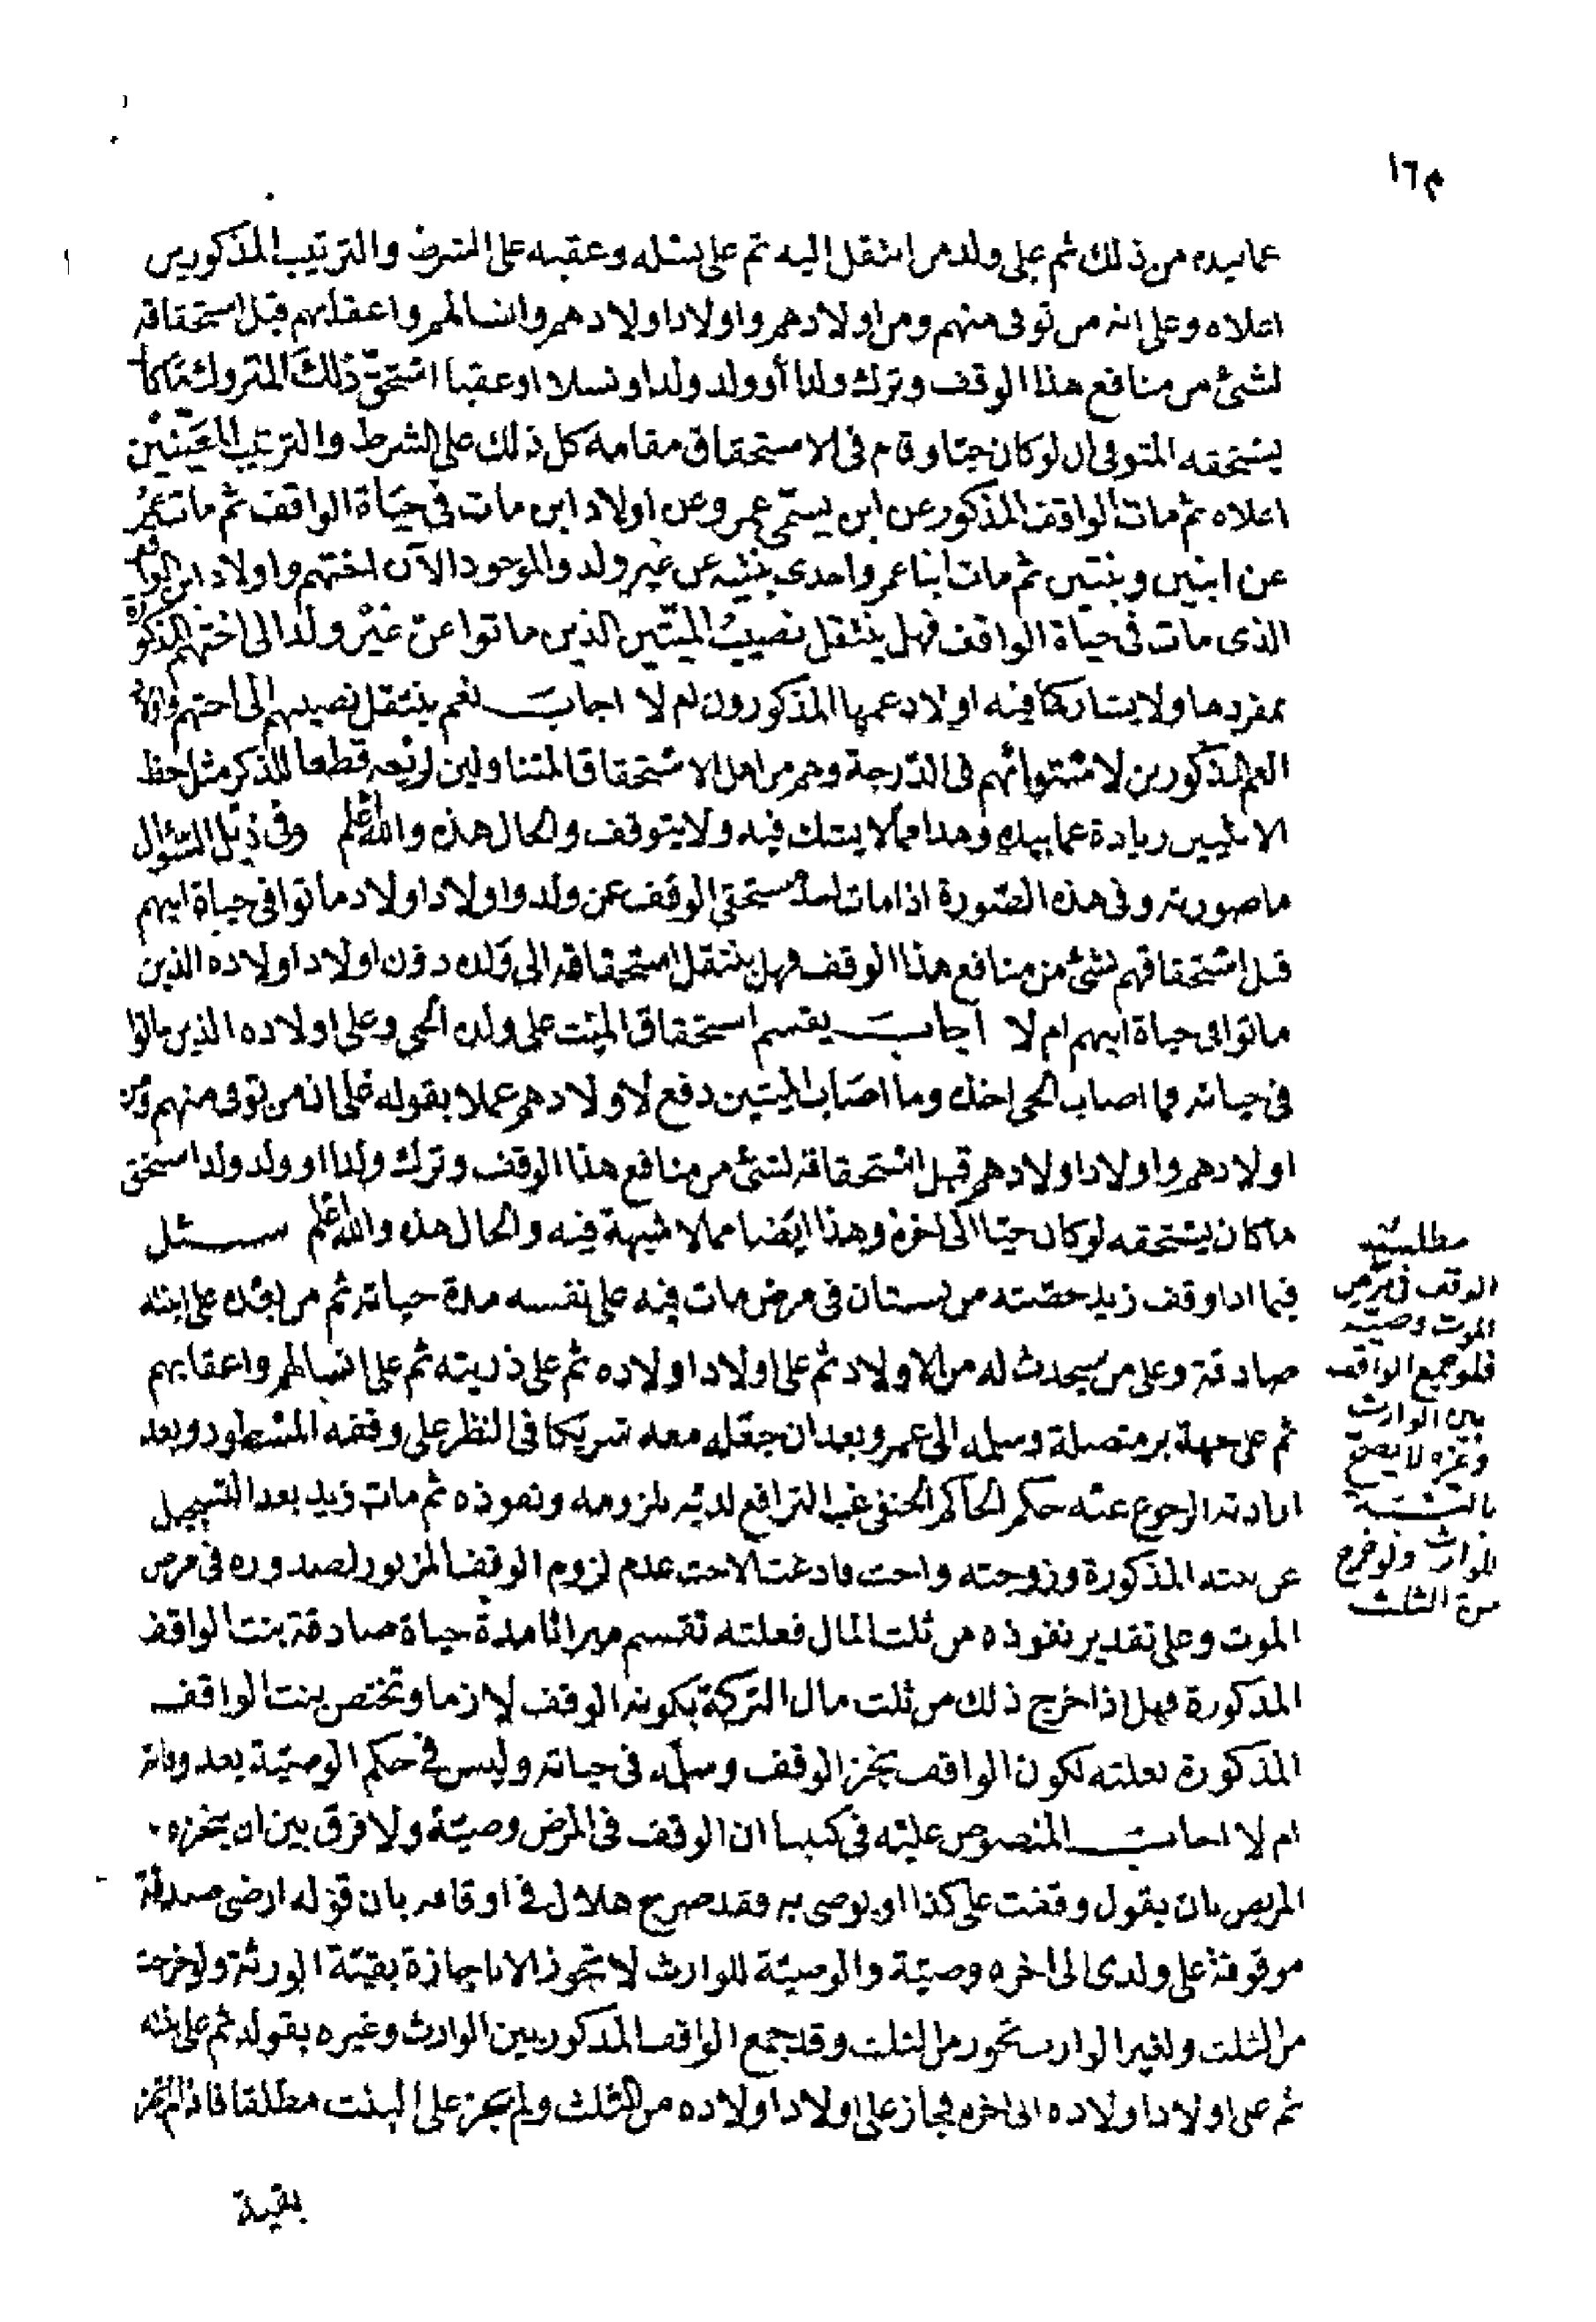 ١٦م
عما بيده من ذلك ثم على ولد من انتقل اليه ثم على نسله وعقبه على الشرط والترتيب المذكورين
اعلاه وعلى انه من توفى منهم ومن اولادهم واولاد اولادهم وانسالهم واعقابهم قبل استحقاقه
لشئ من منافع هذا الوقف وترك ولدا أو ولد ولد او نسلا او عقبا استحق ذلك المتروك ما كان
يستحقه المتوفى ان لو كان حيا وقام فى الاستحقاق مقامه كل ذلك على الشرط والترتيب المعينين
اعلاه ثم مات الواقف المذكور عن ابن يسمى عمر وعن اولاد ابن مات فى حياة الواقف ثم مات عمر
عن ابنين وبنتين ثم مات ابنا عمر واحدى بنتيه عن غير ولد والموجود الآن اختهم واولاد ابن الواقف
الذى مات فى حياة الواقف فهل ينتقل نصيب الميتين الذين ماتوا عن غير ولد الى اختهم المذكورة
بمفردها ولا يشاركها فيه اولاد عمها المذكورون ام لا اجاب نعم ينتقل نصيبهم الى اختهم واولاد
العم المذكورين لاستوائهم فى الدرجة وهم من اهل الاستحقاق المتناولين لريعه قطعا للذكر مثل حظ
الانثيين زيادة عما بيده وهذا مما لا يشك فيه ولا يتوقف والحال هذه والله اعلم وفى ذيل السؤال
ما صورته وفى هذه الصورة اذا مات احد مستحقى الوقف عن ولد واولاد اولاد ماتوا فى حياة ابيهم
قبل استحقاقهم لشئ من منافع هذا الوقف فهل ينتقل استحقاقه الى ولده دون اولاد اولاده الذين
ماتوا فى حياة ابيهم ام لا اجاب يقسم استحقاق الميت على ولده الحى وعلى اولاده الذين ماتوا
فى حياته فما اصاب الحى اخذه وما اصاب الميتين دفع لاولادهم عملا بقوله على انه من توفى منهم ومن
اولادهم واولاد اولادهم قبل استحقاقه لشئ من منافع هذا الوقف وترك ولدا او ولد ولد استحق
ما كان يستحقه لو كان حيا الى اخره وهذا ايضا مما لا شبهة فيه والحال هذه والله اعلم سئل
فيما اذا وقف زيد حصته من بستان فى مرض مات فيه على نفسه مدة حياته ثم من بعده على ابنته
صادقة وعلى من سيحدث له من الاولاد ثم على اولاد اولاده ثم على ذريته ثم على انسالهم واعقابهم
ثم على جهة بر متصلة وسلمه الى عمرو بعد ان جعله معه شريكا فى النظر على وقفه المسطور وبعد
ارادته الرجوع عنه حكم الحاكم الحنفى غب الترافع لديه بلزومه ونفوذه ثم مات زيد بعد التسجيل
عن بنته المذكورة وزوجته واخت فادعت الاخت عدم لزوم الوقف المزبور لصدوره فى مرض
الموت وعلى تقدير نفوذه من ثلث المال فغلته تقسم ميراثا مدة حياة صادقة بنت الواقف
المذكورة فهل اذا خرج ذلك من ثلث مال التركة يكون الوقف لازما وتختص بنت الواقف
المذكورة بغلته لكون الواقف نجز الوقف وسلمه فى حياته وليس فى حكم الوصية بعد وفاته
ام لا اجاب المنصوص عليه فى كتبنا ان الوقف فى المرض وصية ولا فرق بين ان ينجزه
المريض بان يقول وقفت على كذا او يوصى به فقد صرح هلال فى اوقافه بان قوله ارضى صدقة
موقوفة على ولدى الى اخره وصية والوصية للوارث لا تجوز الا باجازة بقية الورثة ولو خرجت
من الثلث ولغير الوارث تجوز من الثلث وقد جمع الواقف المذكور بين الوارث وغيره بقوله ثم على بنته
ثم على اولاد اولاده الى اخره فجاز على اولاد اولاده من الثلث ولم يجز على البنت مطلقا فاذا لم تجز
بقية
مطلب
الوقف فى مرض
الموت وصية
فلو جمع الواقف
بين الوارث
وغيره لا يصح
بالنسبة
للوارث ولو خرج
من الثلث